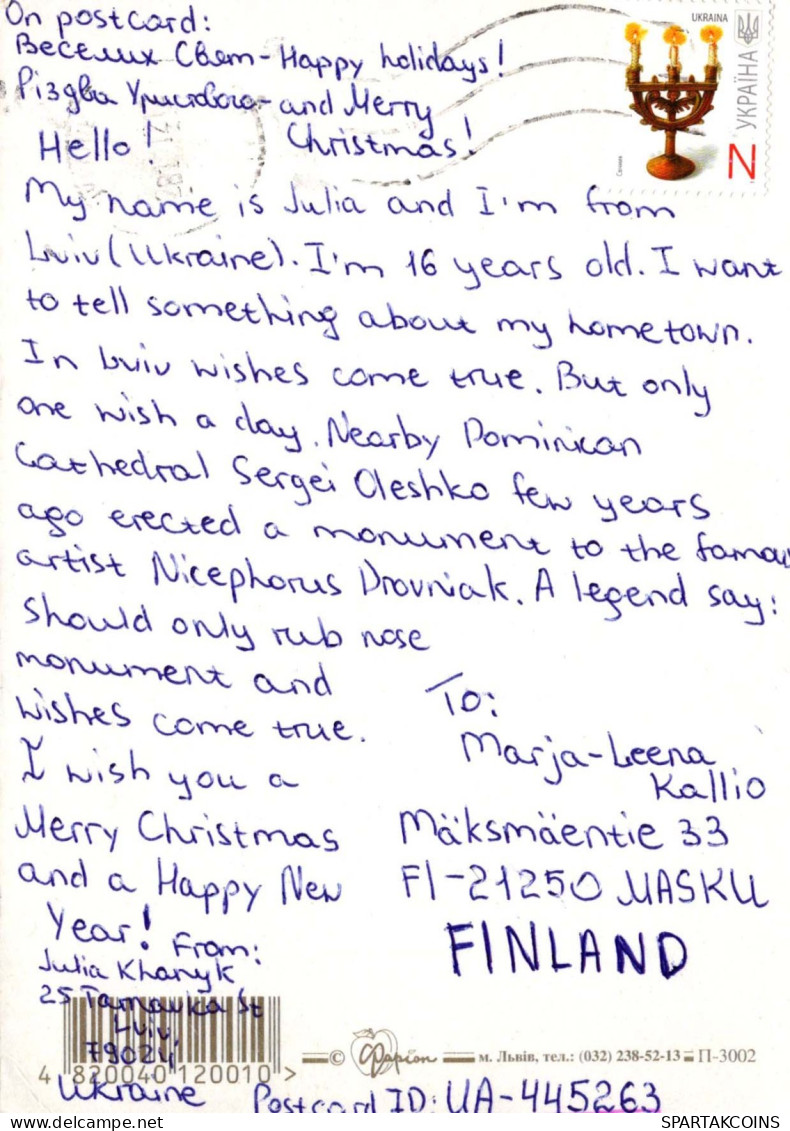 On postcard:
Веселих Свят - Happy holidays!
Різдва Христового - and Merry
Christmas!
UKRAINA
УКРАЇНА
N
Hello!
My name is Julia and I'm from
Lviv (Ukraine). I'm 16 years old. I want
to tell something about my hometown.
In Lviv wishes come true. But only
one wish a day. Nearby Dominican
Cathedral Sergei Oleshko few years
ago erected a monument to the famous
artist Nicephorus Drovniak. A legend say:
should only rub nose
monument and
wishes come true.
I wish you a
Merry Christmas
and a Happy New
Year!
To:
Marja-Leena
Kallio
Mäksmäentie 33
FI-21250 MASKU
FINLAND
From:
Julia Khanyk
25 Tarnavka St
Lviv
79024
Ukraine
4 820040 120010 >
© Papion м. Львів, тел.: (032) 238-52-13 П-3002
Postcard ID: UA-445263
SPARTAKCOINS